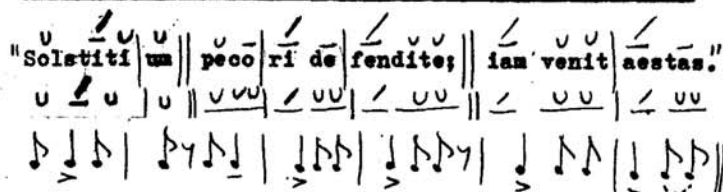 "Solstiti|um||peco|ri de|fendite;||iam venit|aestas."